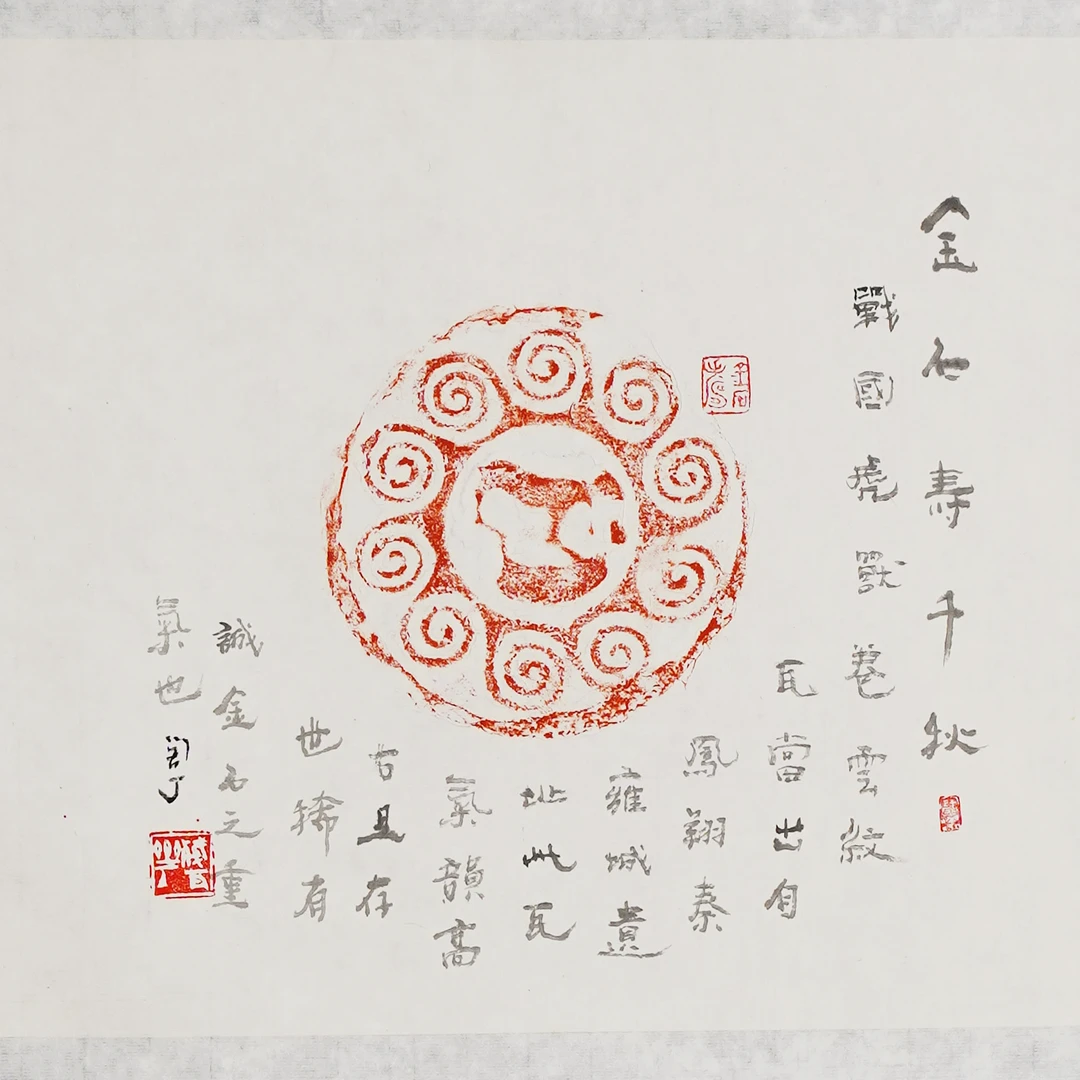 金石寿千秋
戰國虎獸卷雲紋
瓦當出自
鳳翔秦
雍城遺
址此瓦
氣韻高
古且存
世稀有
誠金石之重
氣也